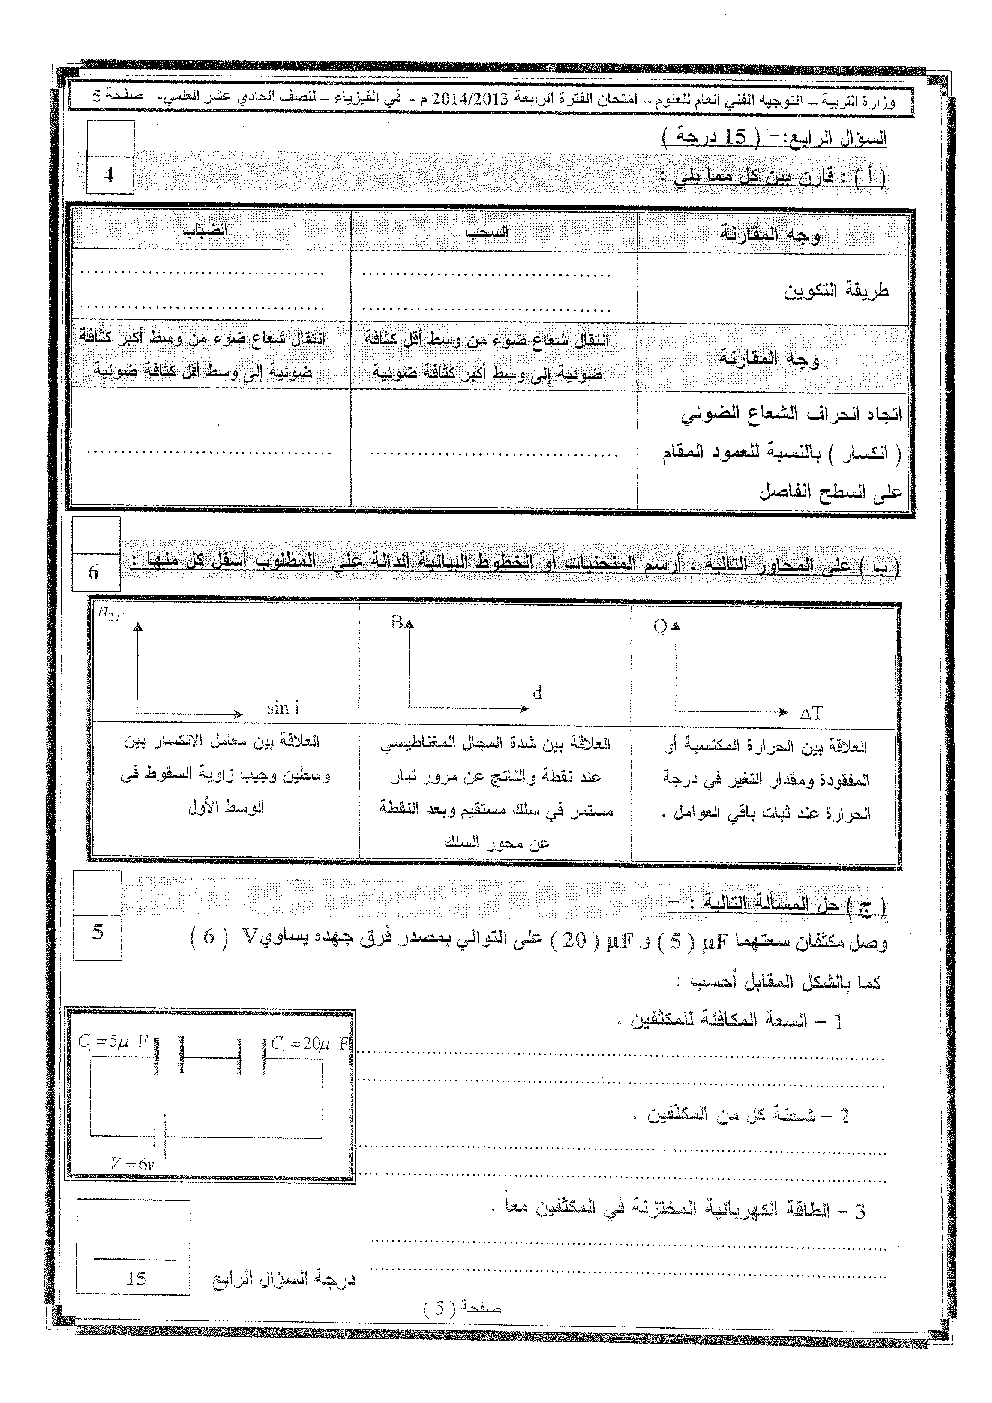 وزارة التربية – التوجيه الفني العام للعلوم – امتحان الفترة الرابعة 2014/2013 م - في الفيزياء – للصف الحادي عشر العلمي- صفحة 5
السؤال الرابع:– ( 15 درجة )
( أ ) : قارن بين كل مما يلي :
4
وجه المقارنة
السحب
الضباب
طريقة التكوين
وجه المقارنة
انتقال شعاع ضوء من وسط أقل كثافة ضوئية إلى وسط أكبر كثافة ضوئية
انتقال شعاع ضوء من وسط أكبر كثافة ضوئية إلى وسط أقل كثافة ضوئية
اتجاه انحراف الشعاع الضوئي
( انكسار ) بالنسبة للعمود المقام
على السطح الفاصل
( ب ) على المحاور التالية . أرسم المنحنيات أو الخطوط البيانية الدالة على المطلوب أسفل كل منها :
6
Q
ΔT
B
d
sin i
العلاقة بين الحرارة المكتسبة أو
المفقودة ومقدار التغير في درجة
الحرارة عند ثبات باقي العوامل .
العلاقة بين شدة المجال المغناطيسي
عند نقطة والناتج عن مرور تيار
مستمر في سلك مستقيم وبعد النقطة
عن محور السلك
العلاقة بين معامل الانكسار بين
وسطين وجيب زاوية السقوط في
الوسط الأول
( ج ) حل المسألة التالية : –
5
وصل مكثفان سعتهما μF ( 5 ) و μF ( 20 ) على التوالي بمصدر فرق جهده يساوي V ( 6 )
كما بالشكل المقابل أحسب :
1 – السعة المكافئة للمكثفين .
=5μ F
=20μ F
V=6v
2 – شحنة كل من المكثفين .
3 – الطاقة الكهربائية المختزنة في المكثفين معاً .
15
درجة السؤال الرابع
صفحة ( 5 )